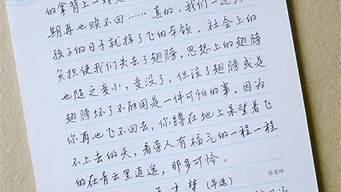 的拿着上一
期再也赎不回……真的，我们一边
孩子的日子就掉了飞的本领，社会上的
负担使我们失去了翅膀，思想上的翅膀
也随之变小，变没了，但没了翅膀或是
翅膀坏了不能用是一件可怕的事，因为
你再也飞不回去，你蹲在地上呆望着飞
不上去的天，看旁人有福气的一程一程
的在青云里逍遥，那多可怜。
(节选)